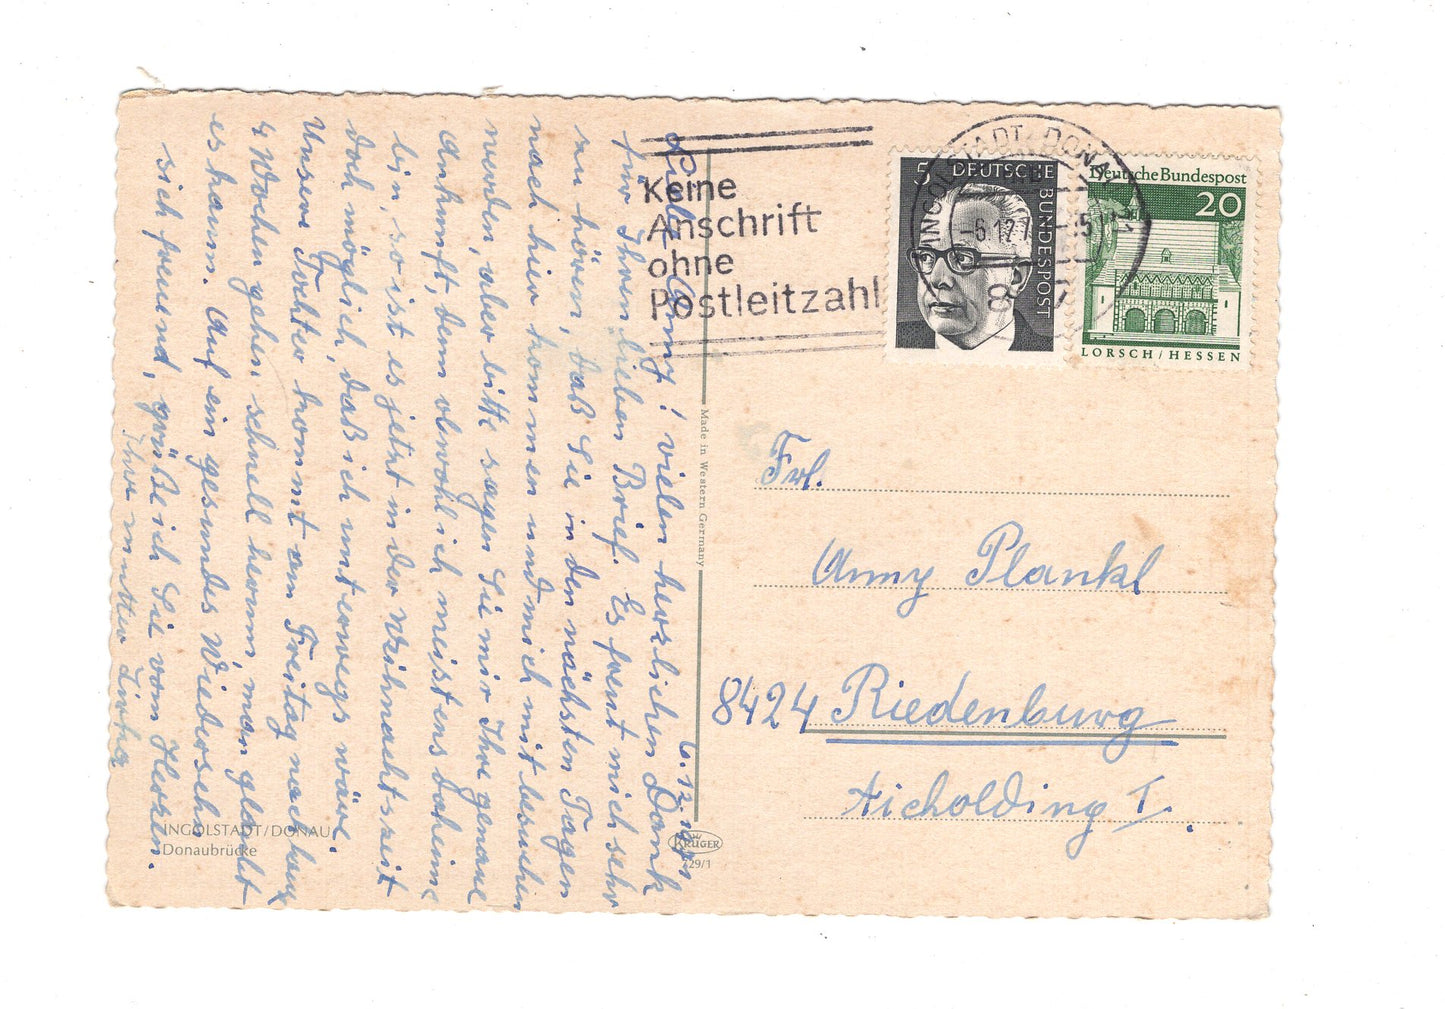 6.12.1971
Liebe Anny! vielen herzlichen Dank
für Ihren lieben Brief. Es freut mich sehr
zu hören, daß Sie in den nächsten Tagen
nach hier kommen und mich mit besuchen
werden, aber bitte sagen Sie mir Ihre genaue
Ankunft, denn obwohl ich meistens daheime
bin, so ist es jetzt in der Weihnachtszeit
doch möglich, daß ich unterwegs wäre.
Unsere Tochter kommt am Freitag nach hause
4 Wochen gehen schnell herum, man glaubt
es kaum. Auf ein gesundes Wiedersehn
sich freuend, grüße ich Sie vom Herzen.
Ihre
INGOLSTADT/DONAU
Donaubrücke
Made in Western Germany
KRÜGER
729/1
Keine
Anschrift
ohne
Postleitzahl
INGOLSTADT, DONAU 21
-6.12.7
8
5 DEUTSCHE BUNDESPOST
Deutsche Bundespost
20
LORSCH / HESSEN
Frl.
Anny Plankl
8424 Riedenburg
Aicholding I.